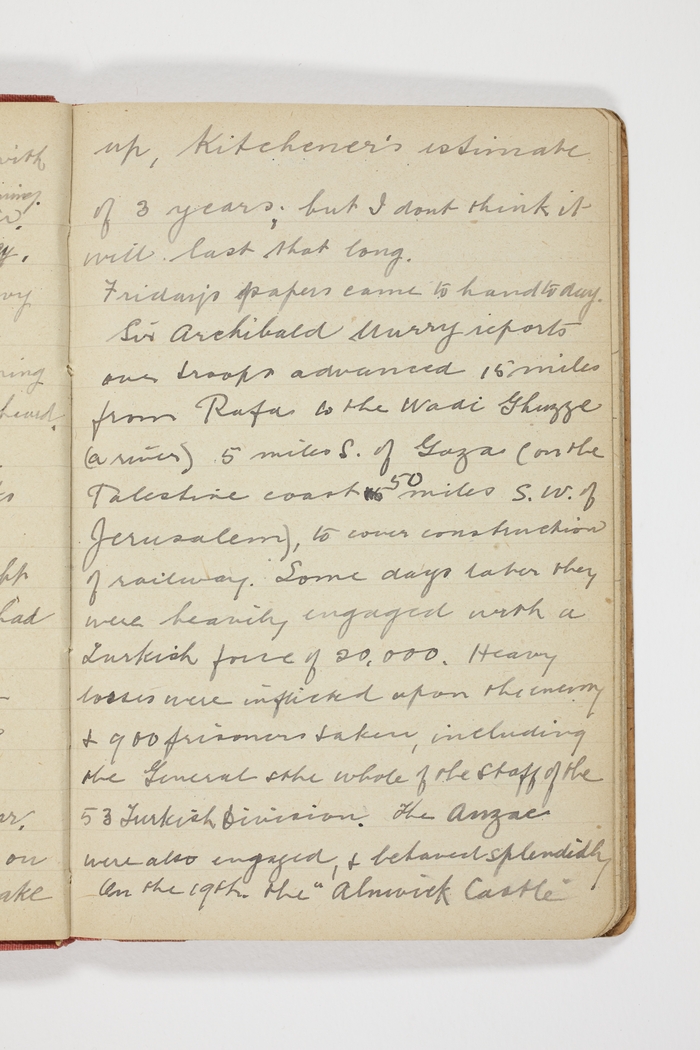 up, Kitchener's estimate
of 3 years; but I dont think it
will last that long.
Friday's papers came to hand today.
Sir Archibald Murry reports
our troops advanced 15 miles
from Rafa to the Wadi Ghuzze
(a river) 5 miles S. of Gaza (on the
Palestine coast 50 miles S.W. of
Jerusalem), to cover construction
of railway. Some days later they
were heavily engaged with a
Turkish force of 20,000. Heavy
losses were inflicted upon the enemy
& 900 prisoners taken, including
the General & the whole of the Staff of the
53 Turkish Division. The Anzac
were also engaged, & behaved splendidly
On the 19th. the "Alnwick Castle"
with
ring
heard
had
on